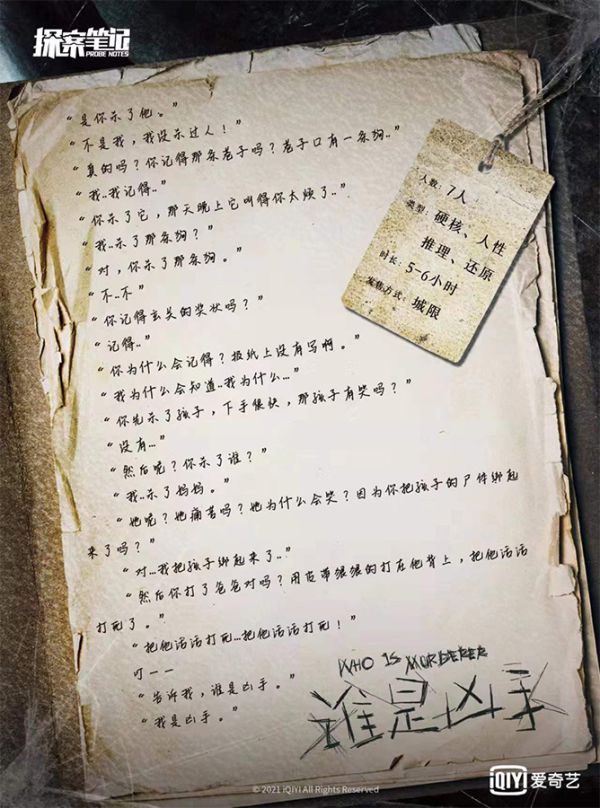 探案笔记
PROBE NOTES
“是你杀了他。”
“不是我，我没杀过人！”
“真的吗？你记得那条巷子吗？巷子口有一条狗..”
“我..我记得..”
“你杀了它，那天晚上它叫得你太烦了..”
“我..杀了那条狗？”
“对，你杀了那条狗。”
“不..不”
“你记得玄关的奖状吗？”
“记得..”
“你为什么会记得？报纸上没有写啊。”
“我为什么会知道..我为什么...”
“你先杀了孩子，下手很快，那孩子有哭吗？”
“没有...”
“然后呢？你杀了谁？”
“我..杀了妈妈。”
“她呢？她痛苦吗？她为什么会哭？因为你把孩子的尸体绑起
来了吗？”
“对...我把孩子绑起来了..”
“然后你打了爸爸对吗？用皮带狠狠的打在他背上，把他活活
打死了。”
“把他活活打死...把他活活打死！”
叮——
“告诉我，谁是凶手。”
“我是凶手。”
人数：7人
类型：硬核、人性
推理、还原
时长：5-6小时
发售方式：城限
WHO IS MORDERER
谁是凶手
© 2021 iQIYI All Rights Reserved
iQIYI 爱奇艺